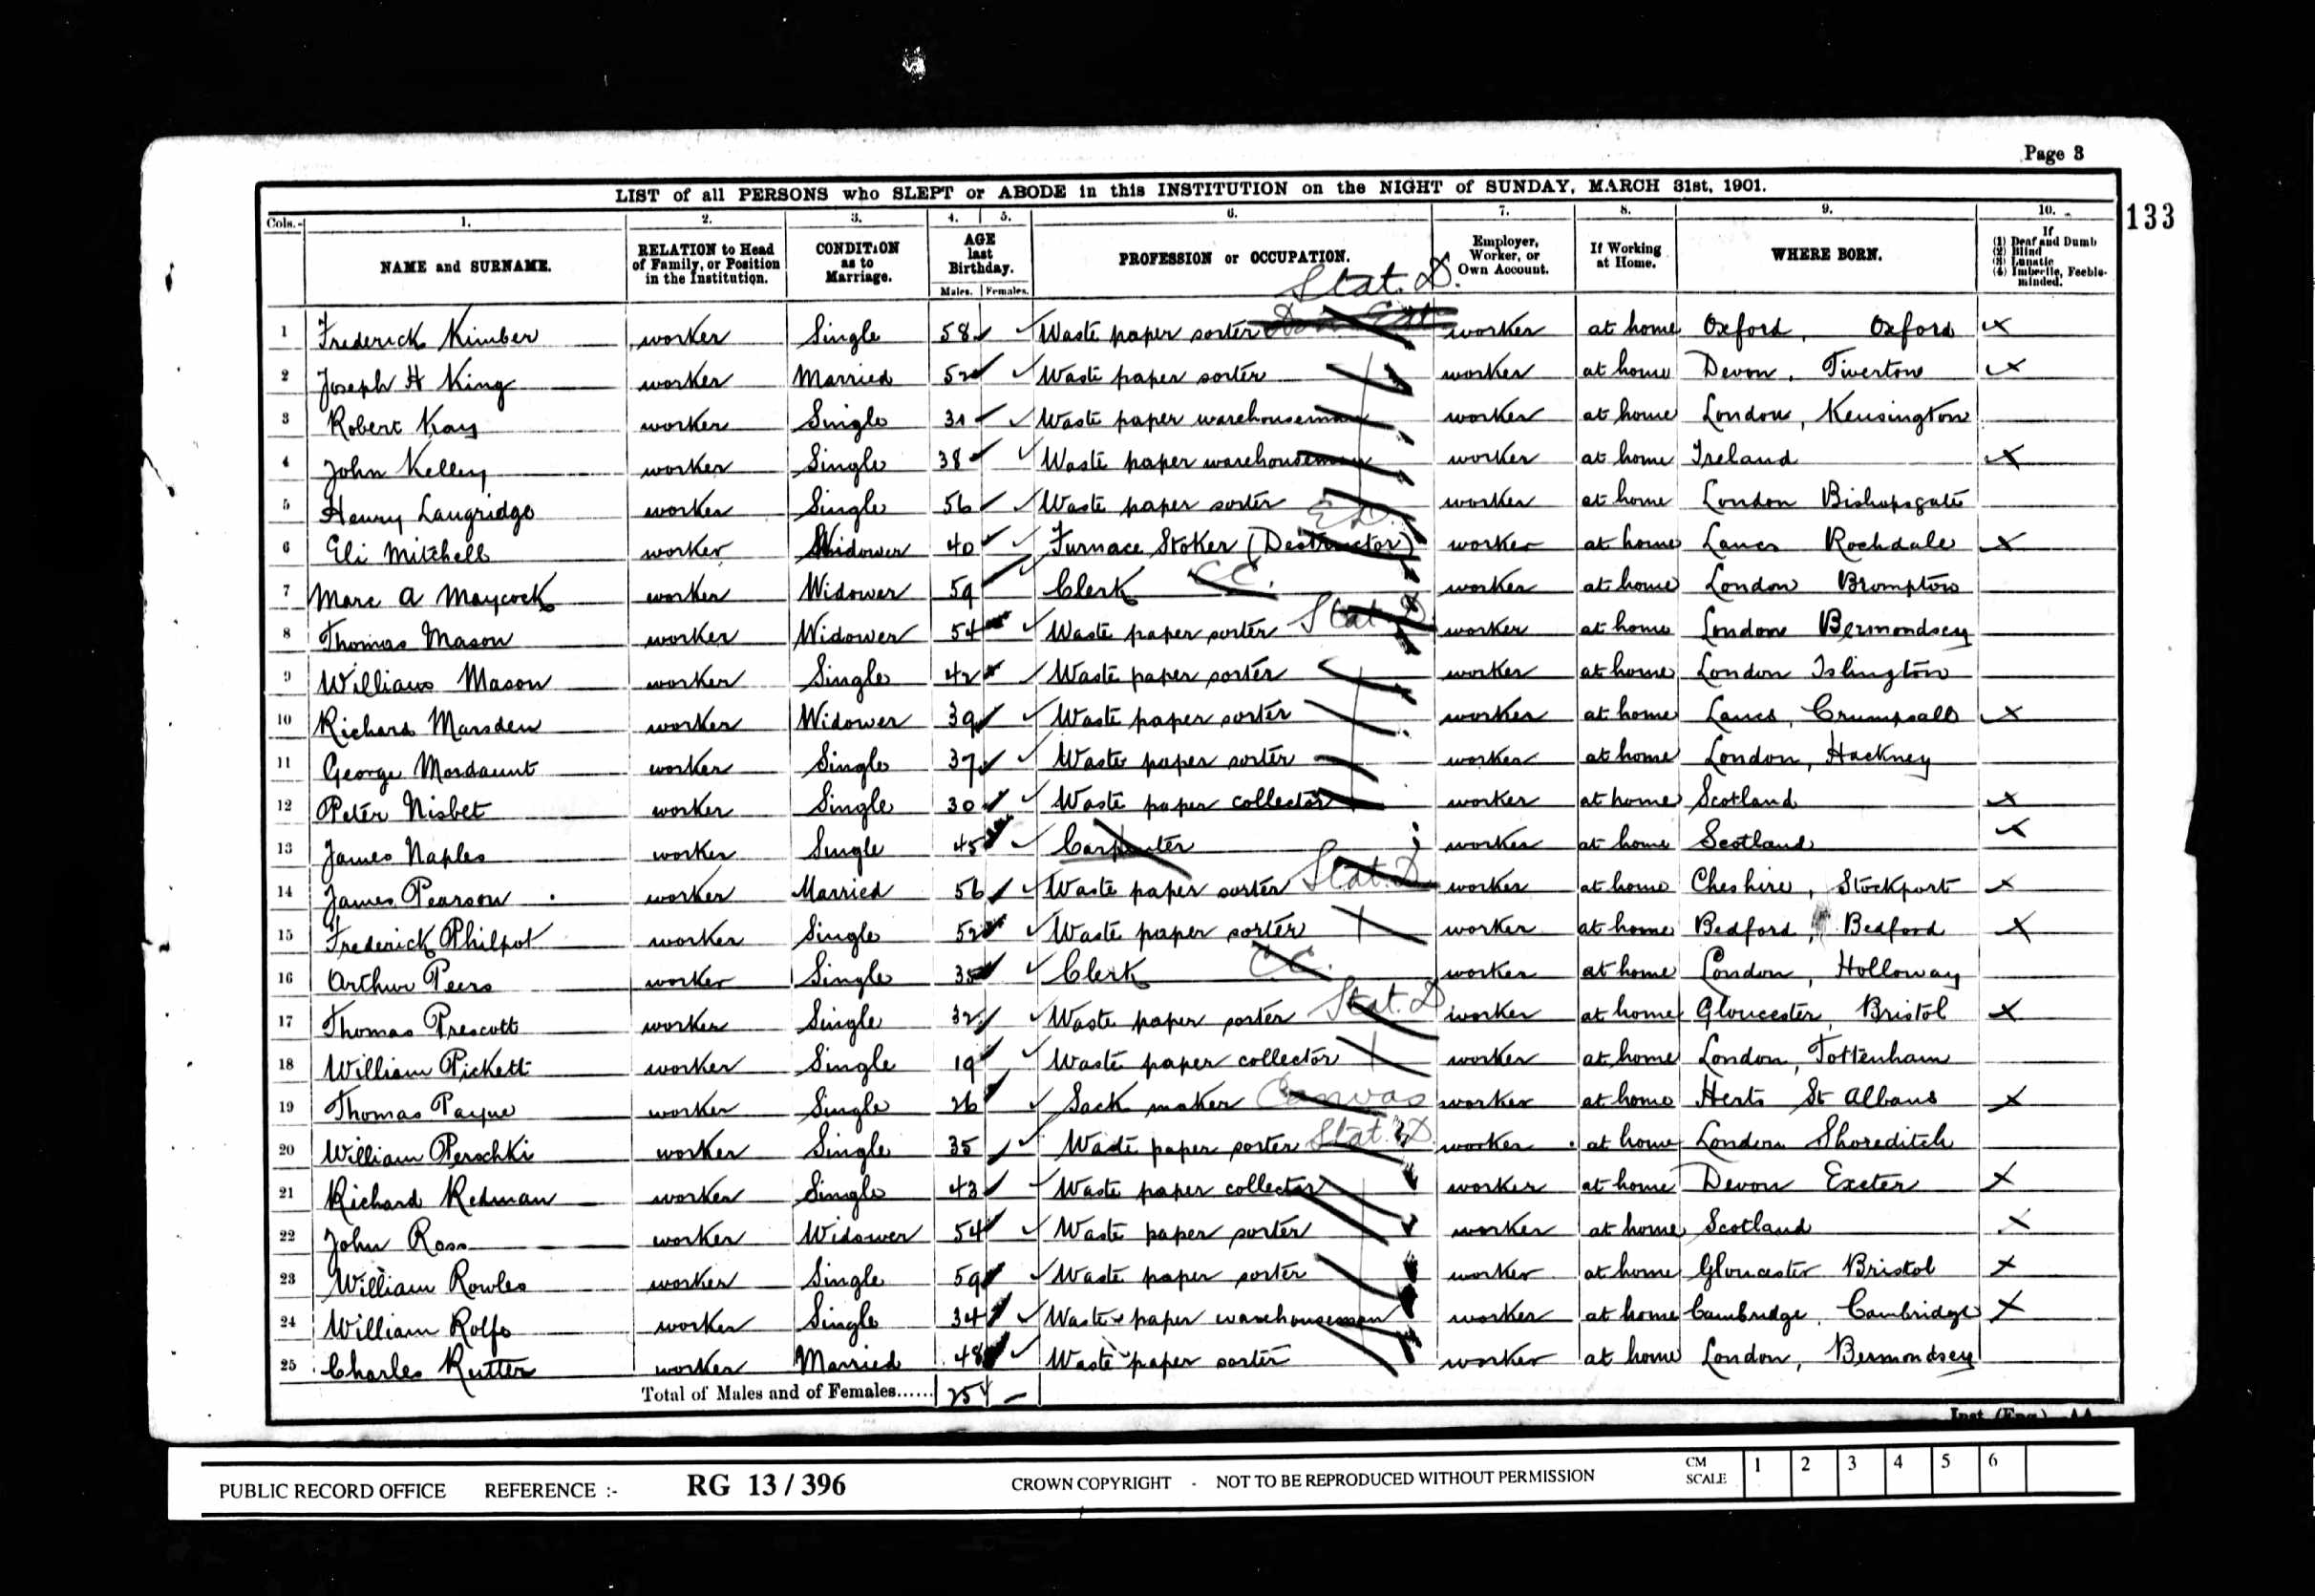 Page 3
133
LIST of all PERSONS who SLEPT or ABODE in this INSTITUTION on the NIGHT of SUNDAY, MARCH 31st, 1901.
Cols.- 1. 2. 3. 4. 5. 6. 7. 8. 9. 10.
NAME and SURNAME. RELATION to Head of Family, or Position in the Institution. CONDITION as to Marriage. AGE last Birthday. Males. Females. PROFESSION or OCCUPATION. Employer, Worker, or Own Account. If Working at Home. WHERE BORN. If (1) Deaf and Dumb (2) Blind (3) Lunatic (4) Imbecile, Feeble-minded.
Stat. D.
1 Frederick Kimber worker Single 58 Waste paper sorter worker at home Oxford, Oxford x
2 Joseph H King worker Married 52 Waste paper sorter worker at home Devon, Tiverton x
3 Robert Kay worker Single 31 Waste paper warehouseman worker at home London, Kensington
4 John Kelley worker Single 38 Waste paper warehouseman worker at home Ireland x
5 Henry Langridge worker Single 56 Waste paper sorter worker at home London Bishopsgate
6 Eli Mitchell worker Widower 40 Furnace Stoker (Destructor) worker at home Lancs Rochdale x
7 Marc A Maycock worker Widower 59 Clerk C.C. worker at home London Brompton
8 Thomas Mason worker Widower 54 Waste paper sorter Stat. D worker at home London Bermondsey
9 William Mason worker Single 42 Waste paper sorter worker at home London Islington
10 Richard Marsden worker Widower 39 Waste paper sorter worker at home Lancs, Crumpsall x
11 George Mordaunt worker Single 37 Waste paper sorter worker at home London, Hackney
12 Peter Nisbet worker Single 30 Waste paper collector worker at home Scotland x
13 James Naples worker Single 45 Carpenter worker at home Scotland x
14 James Pearson worker Married 56 Waste paper sorter Stat. D worker at home Cheshire, Stockport x
15 Frederick Philpot worker Single 52 Waste paper sorter worker at home Bedford, Bedford x
16 Arthur Peers worker Single 35 Clerk C.C. worker at home London, Holloway
17 Thomas Prescott worker Single 32 Waste paper sorter Stat. D worker at home Gloucester, Bristol x
18 William Pickett worker Single 19 Waste paper collector worker at home London, Tottenham
19 Thomas Payne worker Single 26 Sack maker Canvas worker at home Herts St Albans x
20 William Perschki worker Single 35 Waste paper sorter Stat. D worker at home London Shoreditch
21 Richard Redman worker Single 43 Waste paper collector worker at home Devon Exeter x
22 John Ross worker Widower 54 Waste paper sorter worker at home Scotland x
23 William Rowles worker Single 59 Waste paper sorter worker at home Gloucester Bristol x
24 William Rolfe worker Single 34 Waste paper warehouseman worker at home Cambridge, Cambridge x
25 Charles Rutter worker Married 48 Waste paper sorter worker at home London, Bermondsey
Total of Males and of Females...... 25 -
PUBLIC RECORD OFFICE REFERENCE :- RG 13 / 396 CROWN COPYRIGHT - NOT TO BE REPRODUCED WITHOUT PERMISSION CM SCALE 1 2 3 4 5 6